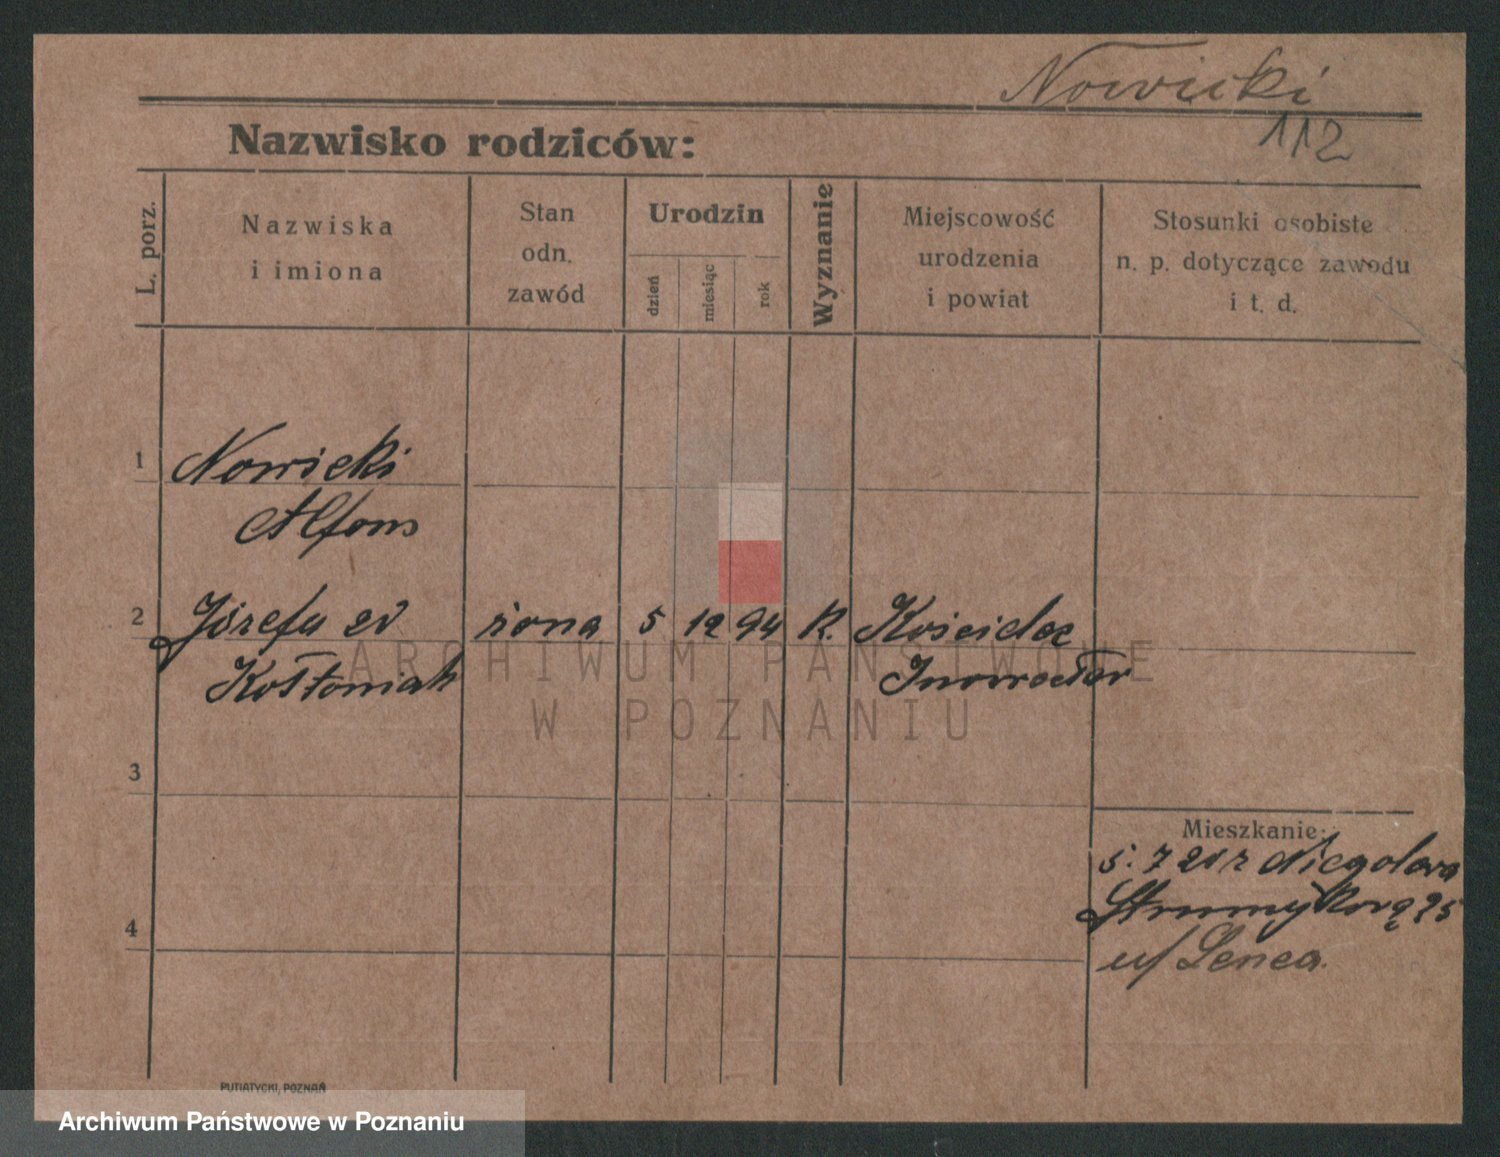 Nowicki
112
Nazwisko rodziców:
L. porz.
Nazwiska
i imiona
Stan
odn.
zawód
Urodzin
dzień
miesiąc
rok
Wyznanie
Miejscowość
urodzenia
i powiat
Stosunki osobiste
n. p. dotyczące zawodu
i t. d.
1
Nowicki
Alfons
2
Józefa
żona 5 12 94 R.
Inowrocław
ARCHIWUM PAŃSTWOWE
W POZNANIU
3
Mieszkanie:
5. 7
Strumykową 25
4
PUTIATYCKI, POZNAŃ
Archiwum Państwowe w Poznaniu